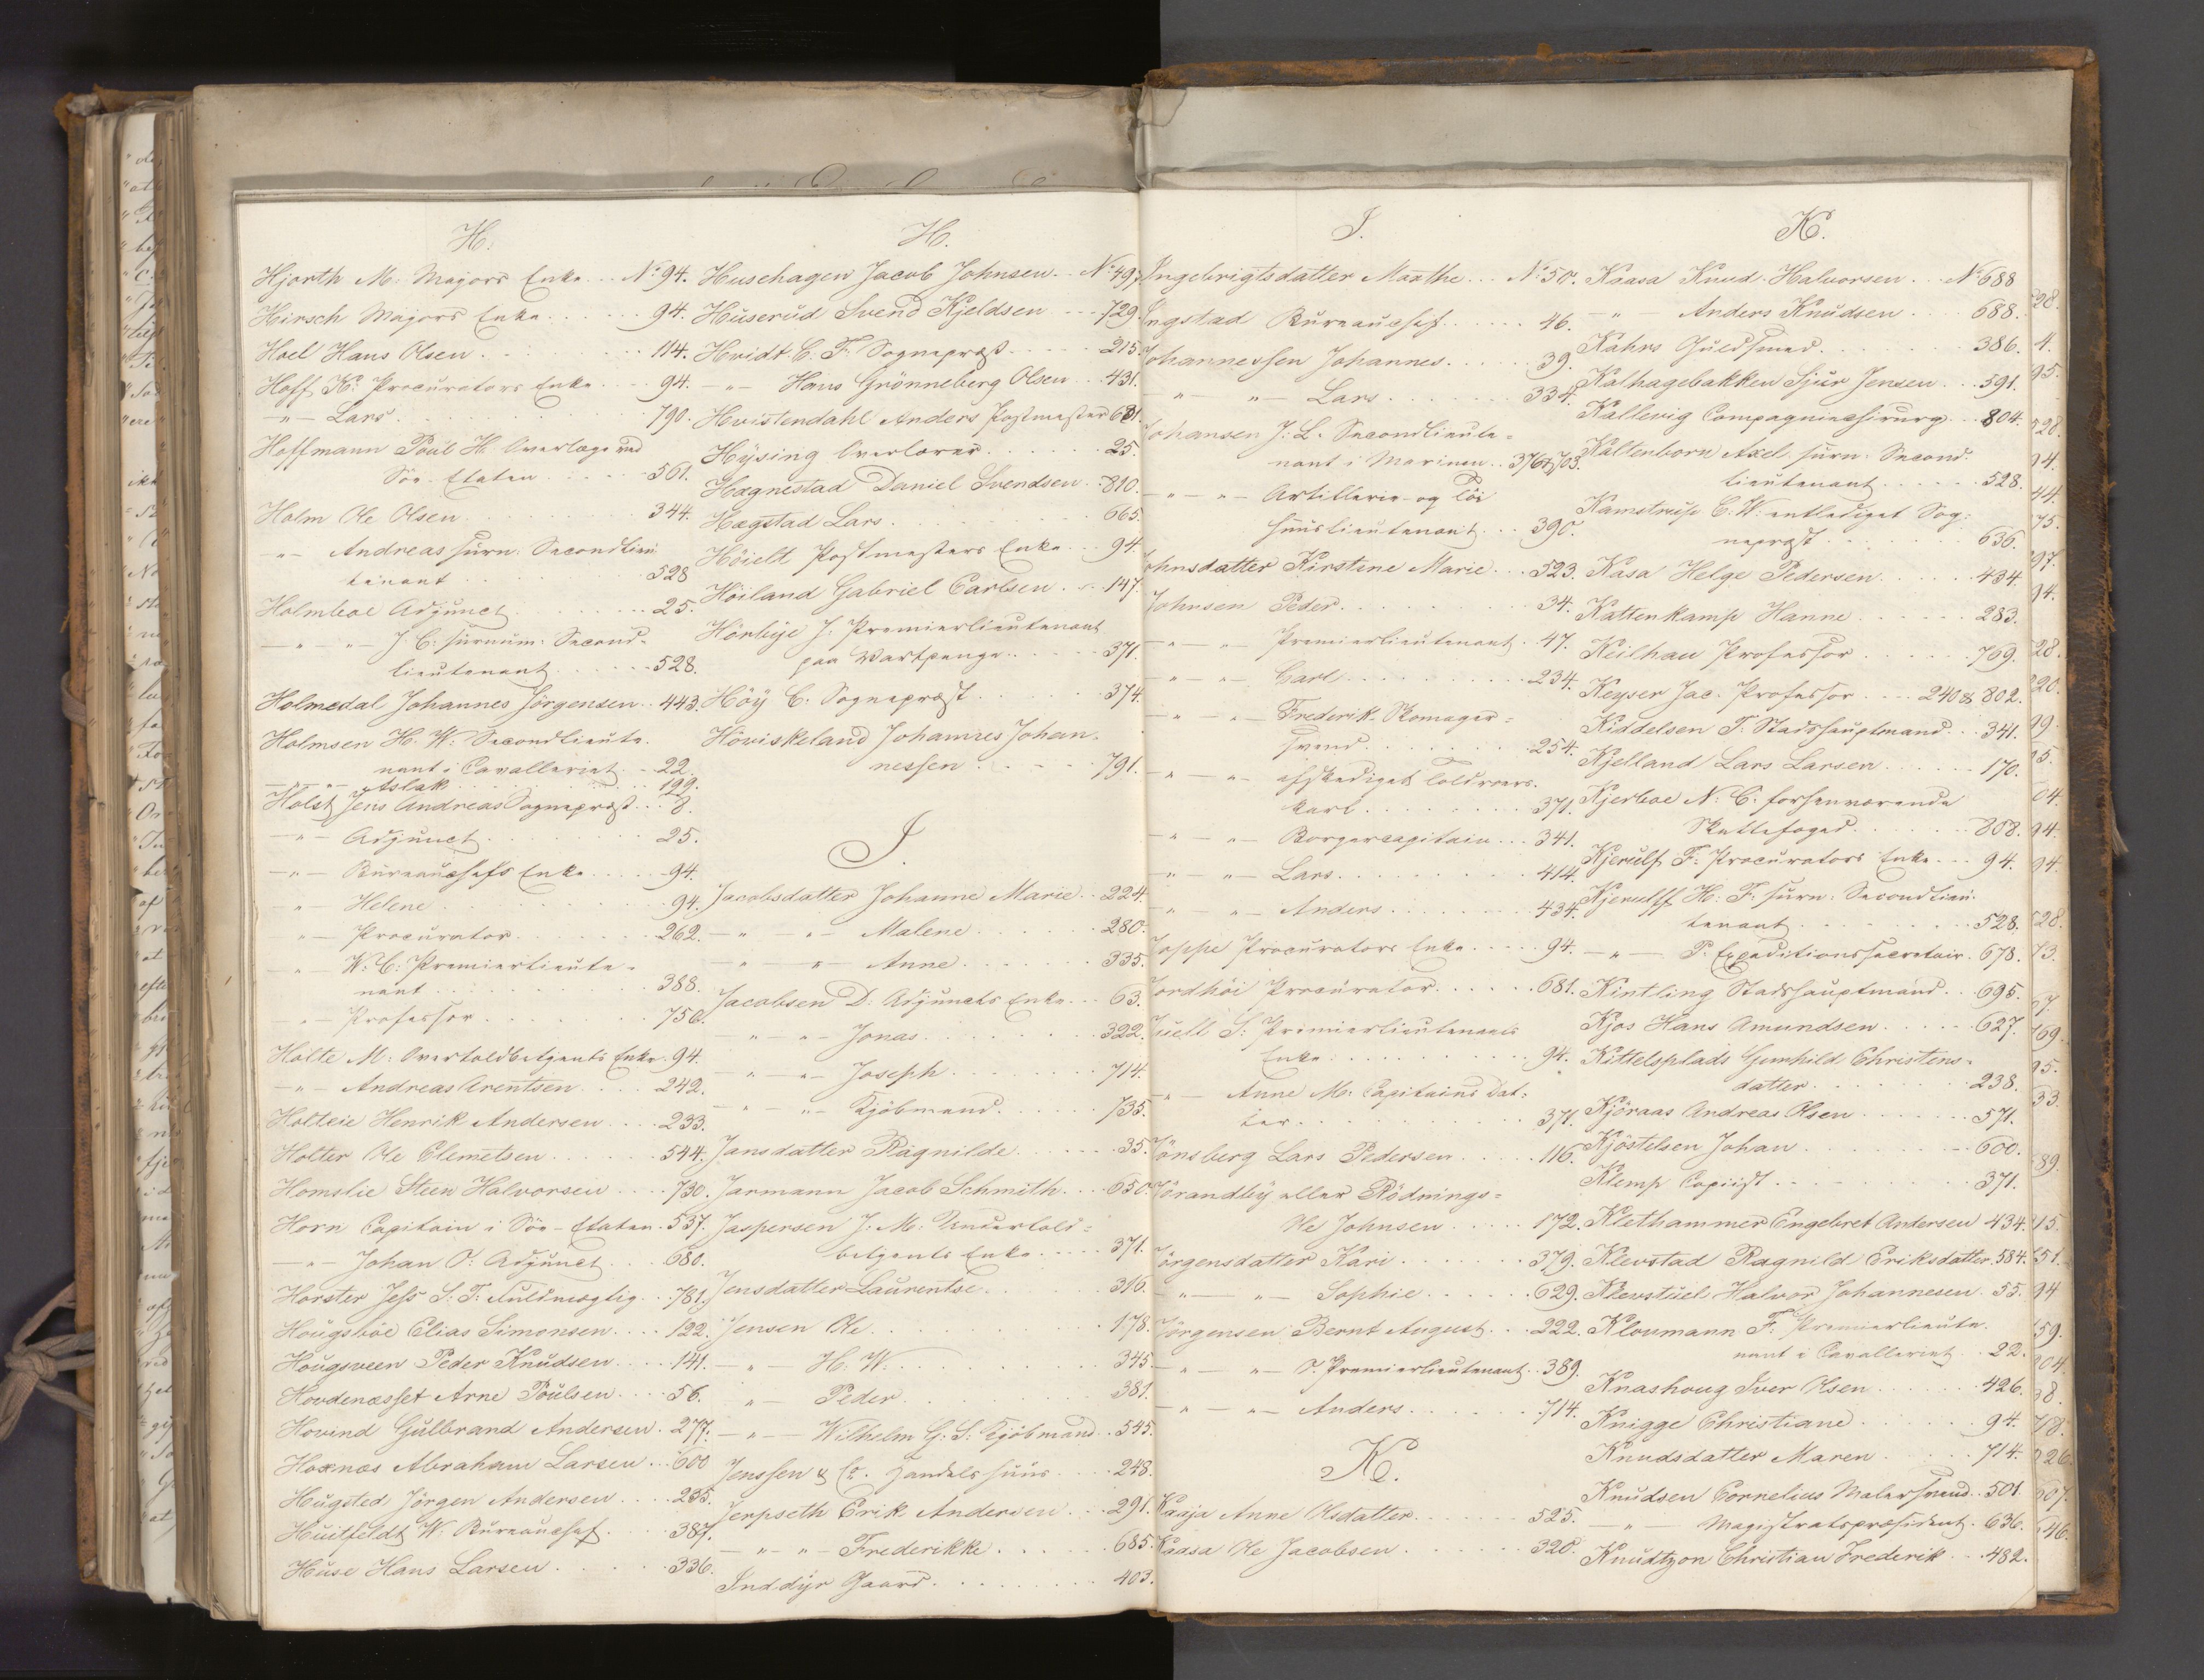 H.
Hjorth M. Majors Enke . . No 94.
Hirsch Majors Enke . . . . . 94.
Hoel Hans Olsen . . . . . . 114.
Hoff K: Procurators Enke . . . 94.
— " — Lars . . . . . . . 790.
Hoffmann Poul H. Overlæge ved
Söe-Etaten . . . . 561.
Holm Ole Olsen . . . . . . 344.
— " — Andreas surn: Secondlieu
tenant . . . . . . 528
Holmboe Adjunct . . . . . . 25.
— " — " — J. C. surnum: Second-
lieutenant . . . . . 528.
Holmedal Johannes Jörgensen . . 443.
Holmsen H. W: Secondlieute-
nant i Cavalleriet . . 22.
— " — " — Aslak . . . . . . 199.
Holst Jens Andreas Sognepræst . . 8.
— " — Adjunct . . . . . . 25.
— " — Bureauchefs Enke . . . . 94.
" — Helene . . . . . . . 94.
" — Procurator . . . . . . 262.
— " — W: C: Premierlieute-
nant . . . . . . . 388.
— " — Professor . . . . . . 756.
Holte M: Overtoldbetjents Enke . 94.
— " — Andreas Arentsen . . . 242.
Holteie Henrik Andersen . . . . 233.
Holter Ole Clemetsen . . . . . 544.
Homslie Steen Halvorsen . . . . 730.
Horn Capitain i Söe-Etaten . 537.
— " — Johan O: Adjunct . . . 680.
Horster Jess S. T. Fuldmægtig . . 781.
Hougsböe Elias Simonsen . . . . 122.
Hougsveen Peder Knudsen . . . . 141.
Hovdenæsset Arne Poulsen . . . . 56.
Hovind Gulbrand Andersen . 277.
Hoxnæs Abraham Larsen . . . 600
Hugsted Jörgen Andersen . . . . 235.
Huitfeldt W. Bureauchef . . . . 387.
Huse Hans Larsen . . . . . . 336.
H.
Husehagen Jacob Johnsen . . No 49
Huserud Svend Kjeldsen . . . 729.
Hvidt C. F. Sognepræst . . . . 215.
— " — Hans Grönneberg Olsen . . 431.
Hvistendahl Anders Postmester 681.
Hysing Overlærer . . . . . 25.
Hægnestad Daniel Svendsen . . 810.
Hægstad Lars . . . . . . . 665.
Höielt Postmesters Enke . . . 94.
Höiland Gabriel Carlsen . . . 147.
Hörbye J. Premierlieutenant
paa Vartpenge . . . . . 371.
Höy C. Sognepræst . . . . . . 374.
Höviskeland Johannes Johan-
nessen . . . . . 791.
J.
Jacobsdatter Johanne Marie . . 224.
— " — " — Malene . . . . . 280.
— " — " — Anne . . . . . . 335.
Jacobsen D. Adjuncts Enke . . . 63.
— " — " — Jonas . . . . . . 322.
— " — " — Joseph . . . . . . 714.
— " — " — Kjöbmand . . . . . 735.
Jansdatter Ragnilde . . . . . 35.
Jarmann Jacob Schmith . . . 650.
Jaspersen J. M: Undertold-
betjents Enke . . . . . 371.
Jensdatter Laurentse . . . . . 316.
Jensen Ole . . . . . . . 178.
— " — H: W. . . . . . . 345.
" — Peder . . . . . . . 381.
— " — Wilhelm G. S. Kjöbmand . . 545.
Jenssen & Co. Handelshuus . . . . 248.
Jerpseth Erik Andersen . . . 291.
— " — " — Frederikke . . . . . 685.
Inddyr Gaard . . . . . . . 403.
J.
Ingebrigtsdatter Marthe . . . No 50.
Ingstad Bureauchef . . . . . 46.
Johannessen Johannes . . . . . 39.
— " — " — Lars . . . . . . 334.
Johansen J: L. Secondlieute-
nant i Marinen . . 376 & 703.
— " — " — Artillerie- og Töi
huuslieutenant . . . 390.
Johnsdatter Kirstine Marie . . . 523.
Johnsen Peder . . . . . . . 34.
— " — " — Premierlieutenant . 47.
— " — " — Carl . . . . . . . 234.
— " — " — Frederik Skomager-
svend . . . . . . . 254.
— " — " — afskediget Toldroers-
karl . . . . . . . 371.
— " — " — Borgercapitain . . . 341.
— " — " — Lars . . . . . . . 414.
— " — " — Anders . . . . . . 434.
Joppe Procurators Enke . . . . . 94.
Jordhöi Procurator . . . . . . 681.
Juell S: Premierlieutenants
Enke . . . . . . . . 94.
— " — Anne M: Capitains Dat-
ter . . . . . . . . . 371.
Jönsberg Lars Pedersen . . . . . 116.
Jörandby eller Rödnings-
Ole Johnsen . . . . . 172.
Jörgensdatter Kari . . . . . . 379.
" — " — Sophie . . . . . 629.
Jörgensen Bernt August . . . 222.
— " — " — P. Premierlieutenant . . 389.
— " — " — Anders . . . . . . 714.
K.
Kaaja Anne Olsdatter . . . . . . 525.
Kaasa Ole Jacobsen . . . . . . 320.
K.
Kaasa Knud Halvorsen . . . No 688
— " — Anders Knudsen . . . . 688.
Kahrs Guldsmed . . . . . . . 386.
Kalhagebakken Sjur Jensen . . . 591.
Kallevig Compagniechirurg . . . 804.
Kaltenborn Axel surn: Second-
lieutenant . . . . . . 528.
Kamstrup C. W: entlediget Sog-
nepræst . . . . . . . 636.
Kasa Helge Pedersen . . . . . 434.
Kattenkamp Hanne . . . . . . 283.
Keilhau Professor . . . . . . 769.
Keyser Jac. Professor . . . . 240 & 802.
Kiddelsen T. Stadshauptmand . . . 341.
Kjelland Lars Larsen . . . . . . 170.
Kjerboe N: C: forhenværende
Skattefoged . . . . . . 808.
Kjerulf T: Procurators Enke . . . 94.
Kjerulff H: F. surn: Secondlieu-
tenant . . . . . . . . 528.
— " — P. Expeditionssecretair . 678.
Kintling Stadshauptmand . . 695.
Kjos Hans Amundsen . . . . . 627.
Kittelsplads Gunhild Christens-
datter . . . . . . . . 238.
Kjöraas Andreas Olsen . . . . . . 571.
Kjöstelsen Johan . . . . . . . . 600.
Klemp Copiist . . . . . . . . 371.
Klethammer Engebret Andersen 434.
Klevstad Ragnild Eriksdatter . 584.
Klevstuel Halvor Johannesen . 55.
Kloumann F: Premierlieute-
nant i Cavalleriet . . . 22.
Knashoug Iver Olsen . . . . . . 426.
Knigge Christiane . . . . . . 94.
Knudsdatter Maren . . . . . . 714.
Knudsen Cornelius Malersvend . . 501.
— " — Magistratspræsident . 636.
Knudtzon Christian Frederik . . . 482.